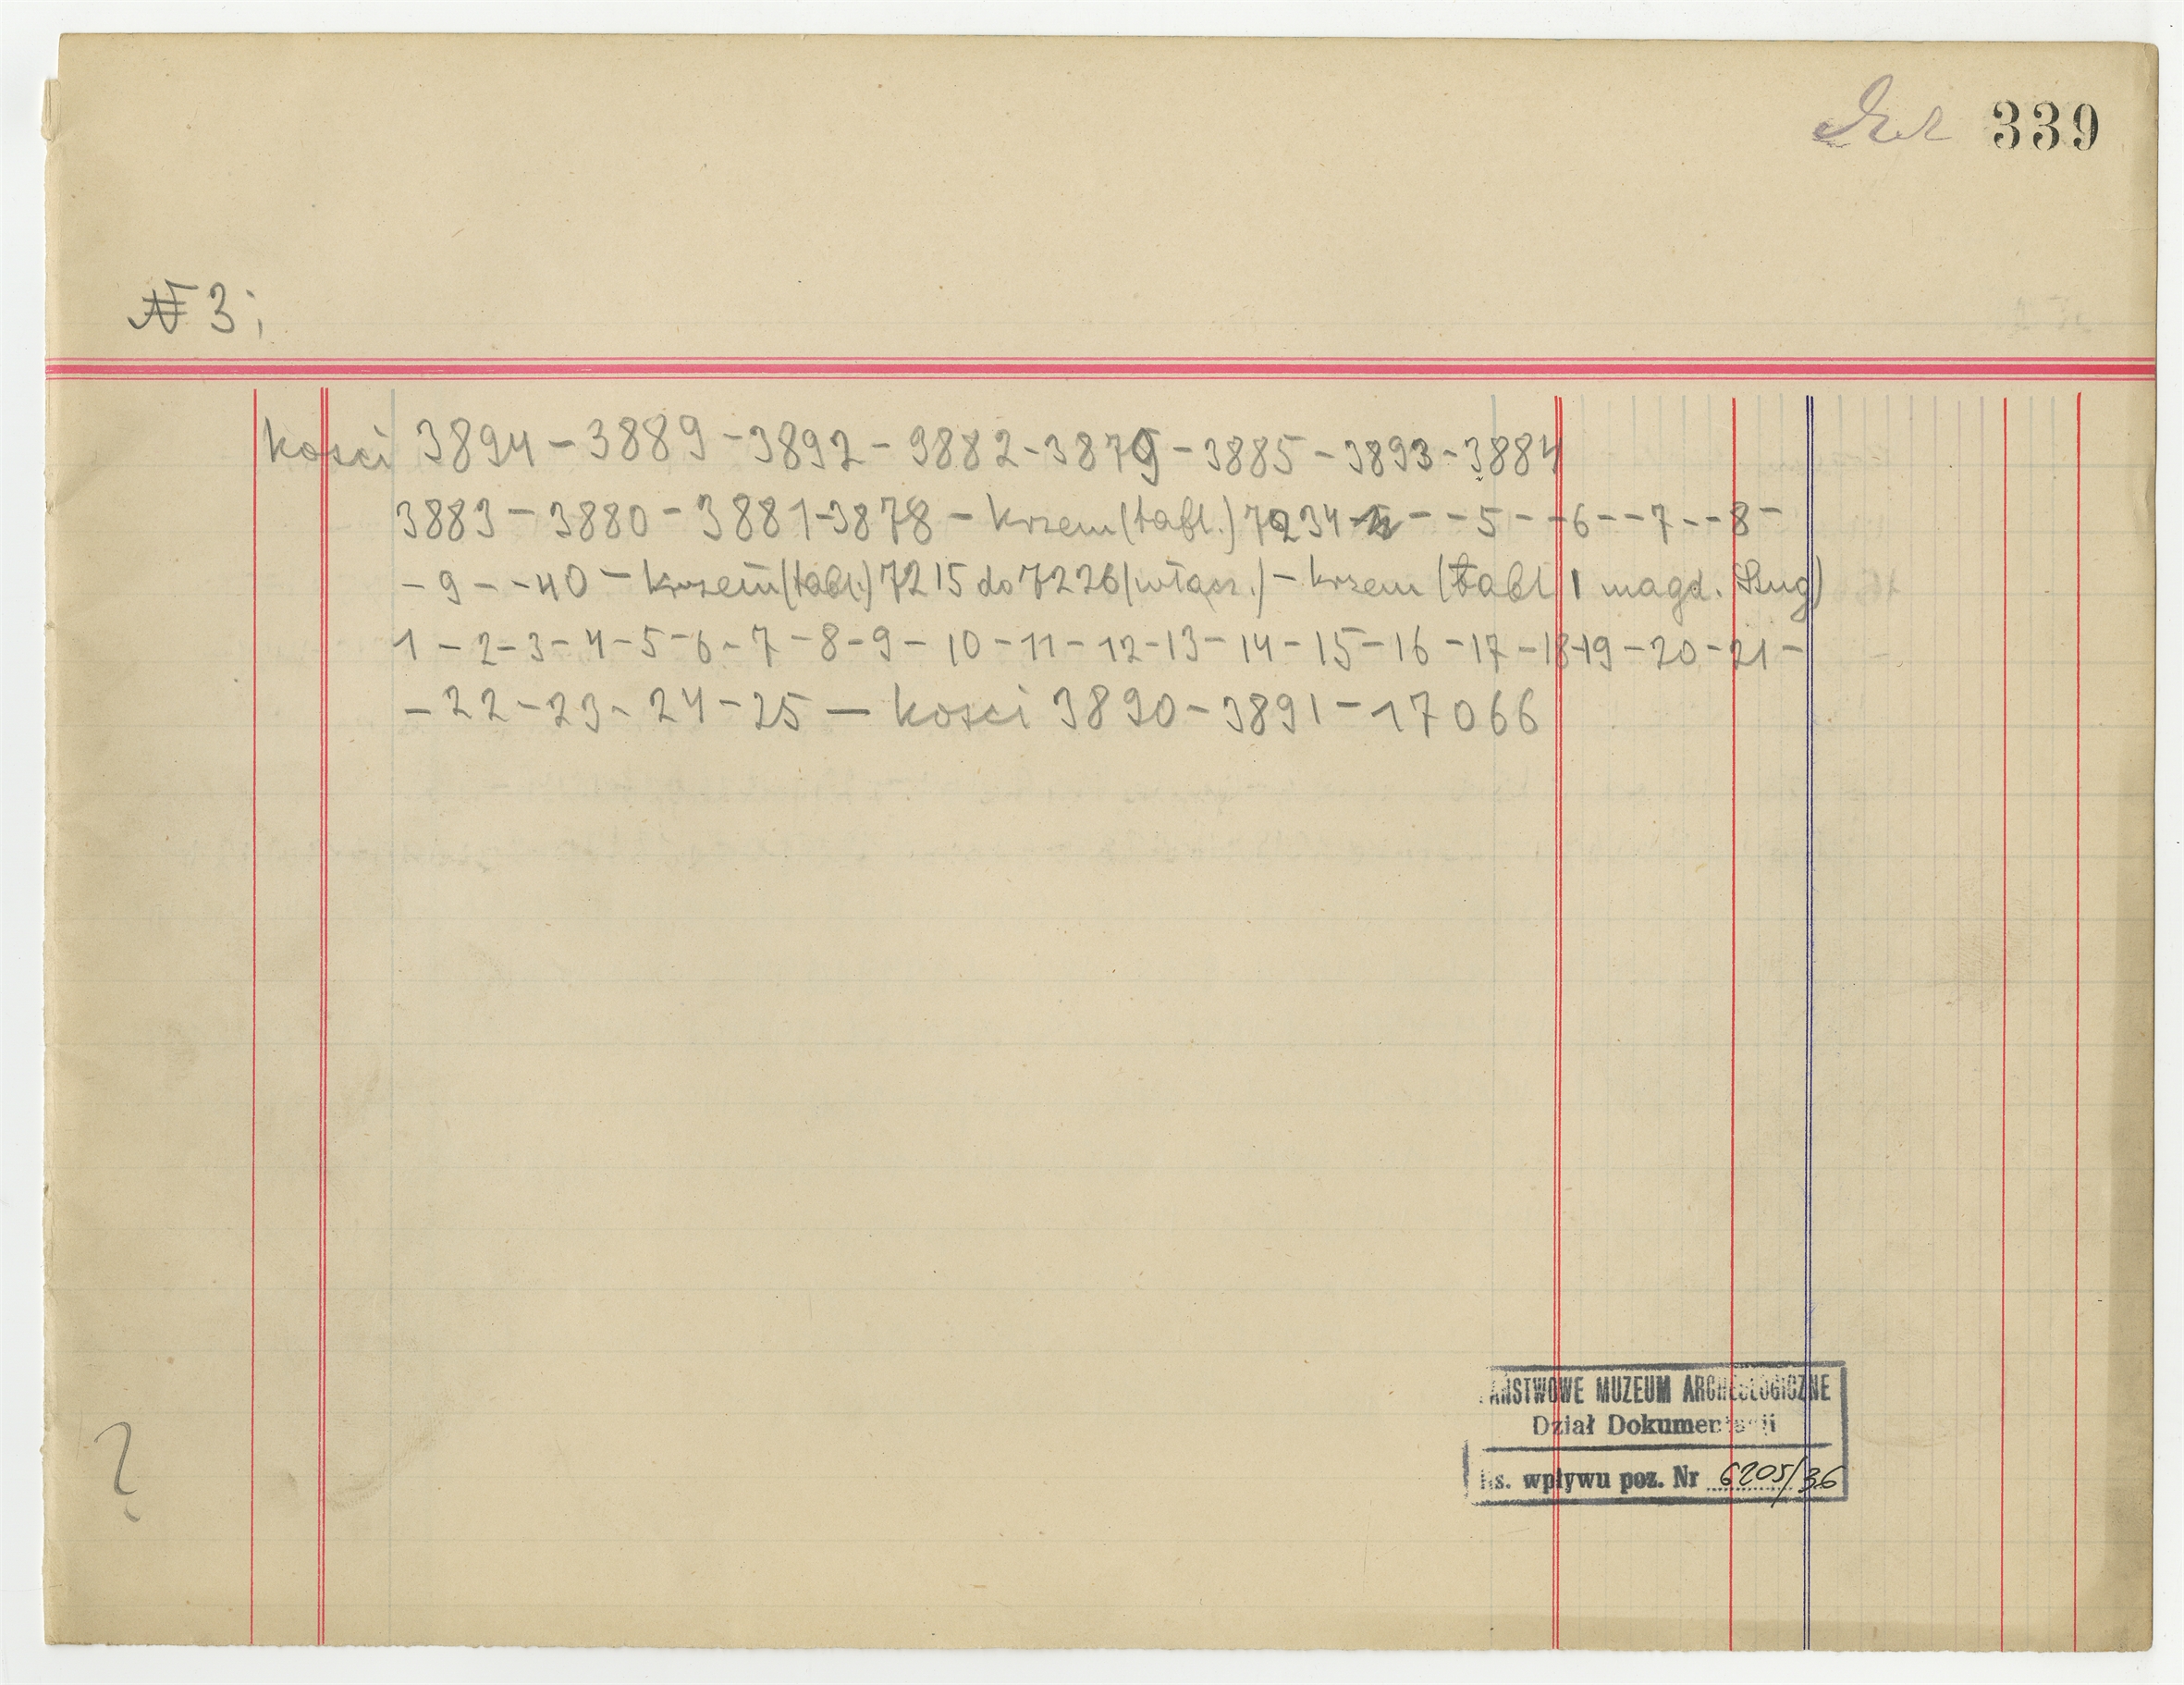 339
N 3;
kosci 3894 - 3889 - 3892 - 3882 - 3879 - 3885 - 3893 - 3884
3883 - 3880 - 3881 - 3878 - krzem (tabl.) 7234 - - - 5 - - 6 - - 7 - - 8 -
- 9 - - 40 - krzem (tabl.) 7215 do 7226 (włącz.) - krzem (tabl 1 magd. )
1 - 2 - 3 - 4 - 5 - 6 - 7 - 8 - 9 - 10 - 11 - 12 - 13 - 14 - 15 - 16 - 17 - 18 - 19 - 20 - 21 -
- 22 - 23 - 24 - 25 — kosci 3890 - 3891 - 17066
?
AŃSTWOWE MUZEUM ARCHEOLOGICZNE
Dział Dokumentacji
Ks. wpływu poz. Nr 6205/36